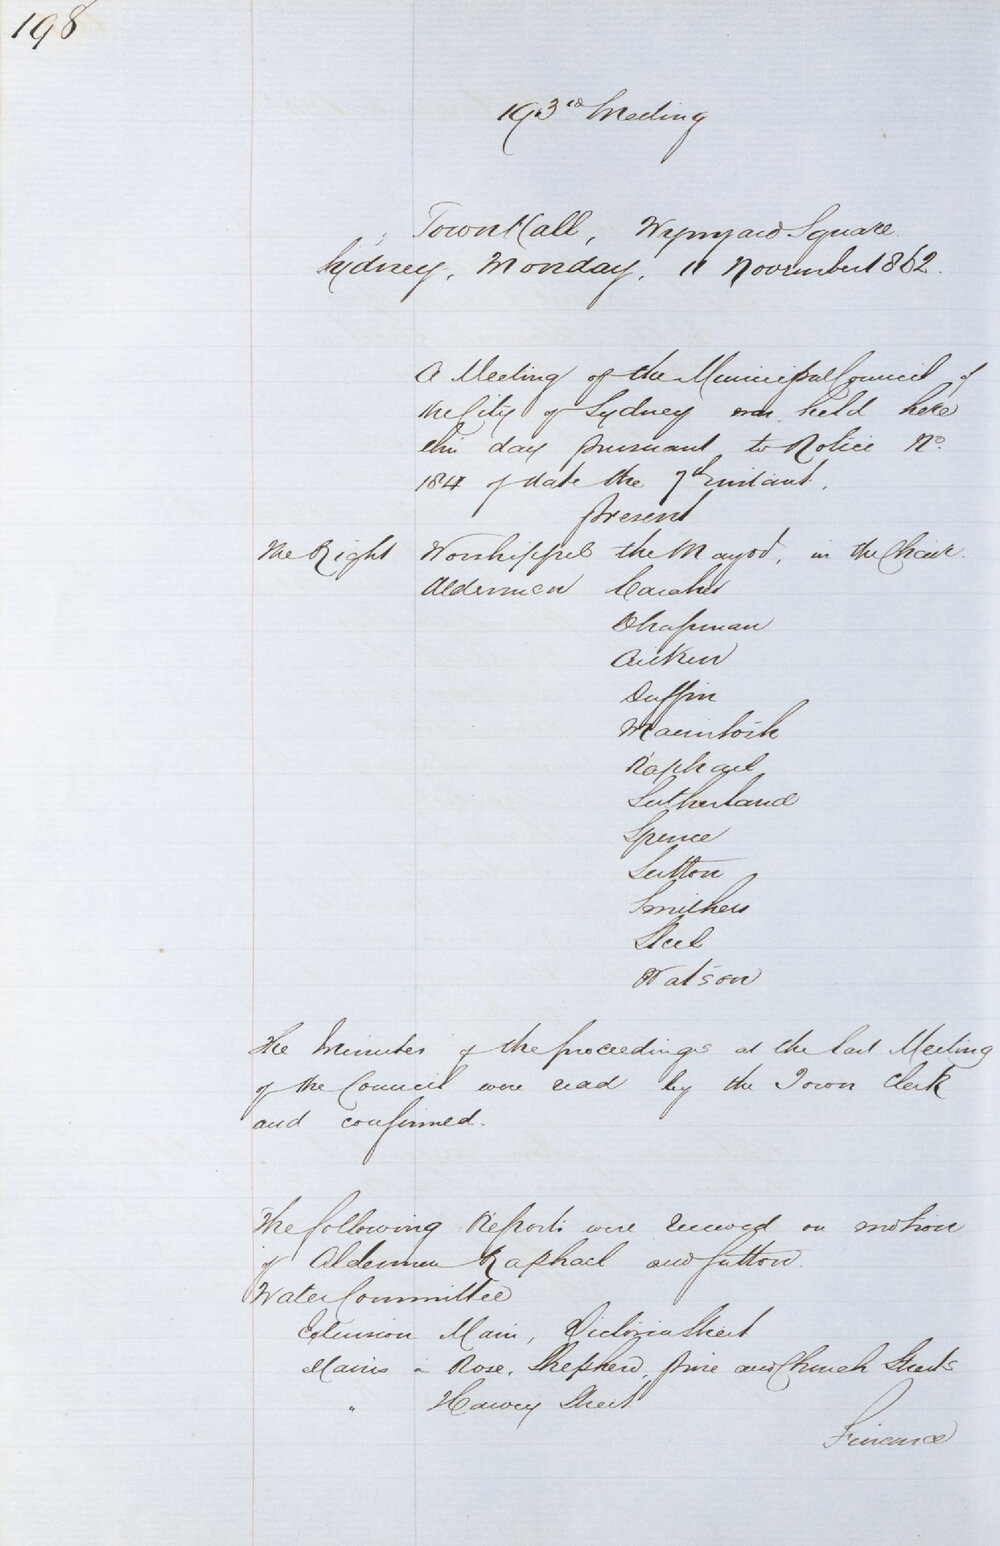 198
193rd Meeting
Town Hall, Wynyard Square
Sydney, Monday, 11 November 1862.
A Meeting of the Municipal Council of
the City of Sydney was held here
this day pursuant to Notice No.
184 of date the 7th instant.
present
The Right Worshipful the Mayor, in the Chair.
Aldermen Caraher
Chapman
Aitken
Duffin
Macintosh
Raphael
Sutherland
Spence
Sutton
Smithers
Steel
Watson
The Minutes of the proceedings at the last Meeting
of the Council were read by the Town Clerk
and confirmed.
The following Reports were received on motion
of Aldermen Raphael and Sutton.
Water Committee
Extension Main, Victoria Street
Mains in Rose, Shepherd, Pine and Church Streets
" Harvey Street
Finance